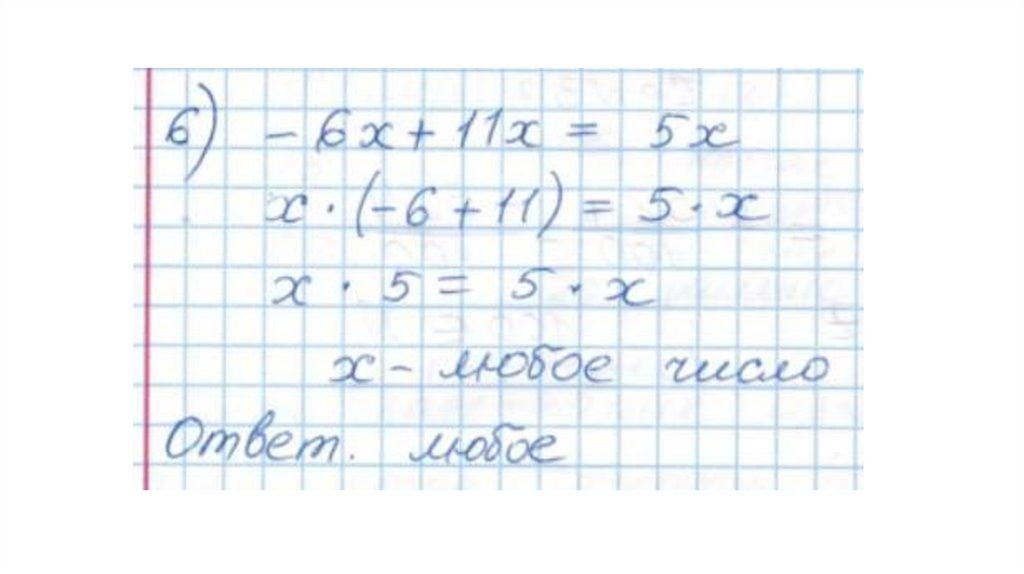 6) - 6x + 11x = 5x
x · (-6 + 11) = 5 · x
x · 5 = 5 · x
x - любое число
Ответ. любое